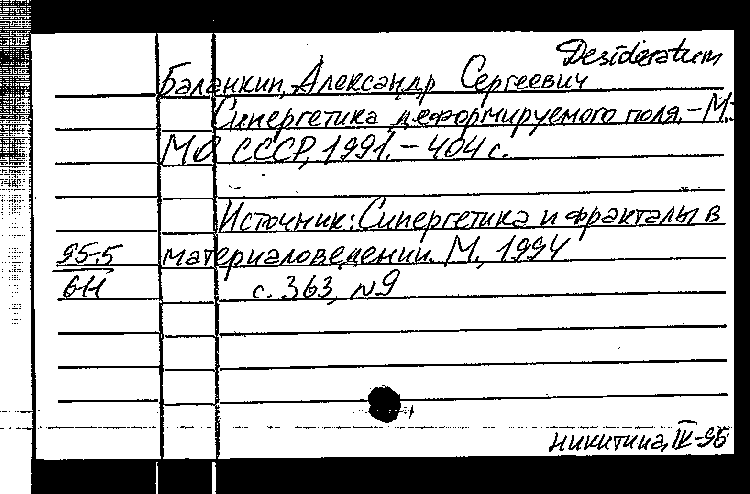 Desideratum
Баланкин, Александр Сергеевич
Синергетика деформируемого поля. – М.:
МО СССР, 1991. – 404 с.
Источник: Синергетика и фракталы в
95-5 материаловедении. М., 1994
611 с. 363, N9
Никитина, IV-95